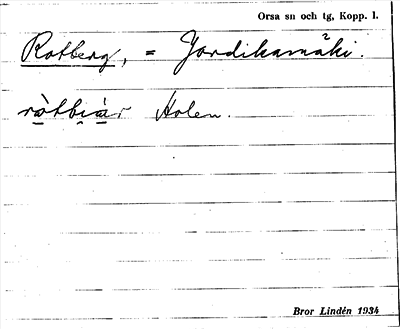 Orsa sn och tg, Kopp. l.
Rotberg, = Jordikamäki.
ròtbiàr Holen.
Bror Lindén 1934